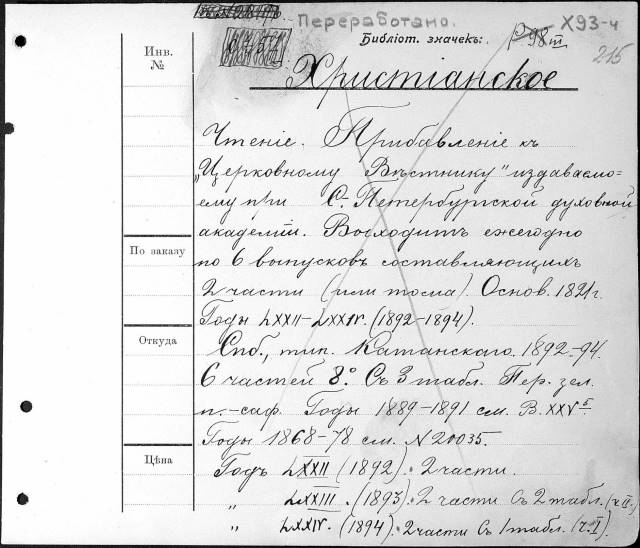 Переработано.
Х93-ч
Библіот. значекъ:
98 III
215
Инв.
№
Христіанское
Чтеніе. Прибавленіе къ
„Церковному Вѣстнику" издаваемо=
ему при С.-Петербургской духовной
академіи. Выходитъ ежегодно
по 6 выпусковъ составляющихъ
2 части (или тома). Основ. 1821 г.
Годы LXXII-LXXIV. (1892-1894).
Спб., тип. Катанскаго. 1892-94.
6 частей 8º. Съ 3 табл. Пер. зел.
п.-саф. Годы 1889-1891 см. В. XXV 5.
Годы 1868-78 см. N 20035.
Годъ LXXII (1892). 2 части.
„ LXXIII. (1893). 2 части съ 2 табл. (ч. II.)
„ LXXIV. (1894). 2 части съ 1 табл. (ч. I).
По заказу
Откуда
Цѣна